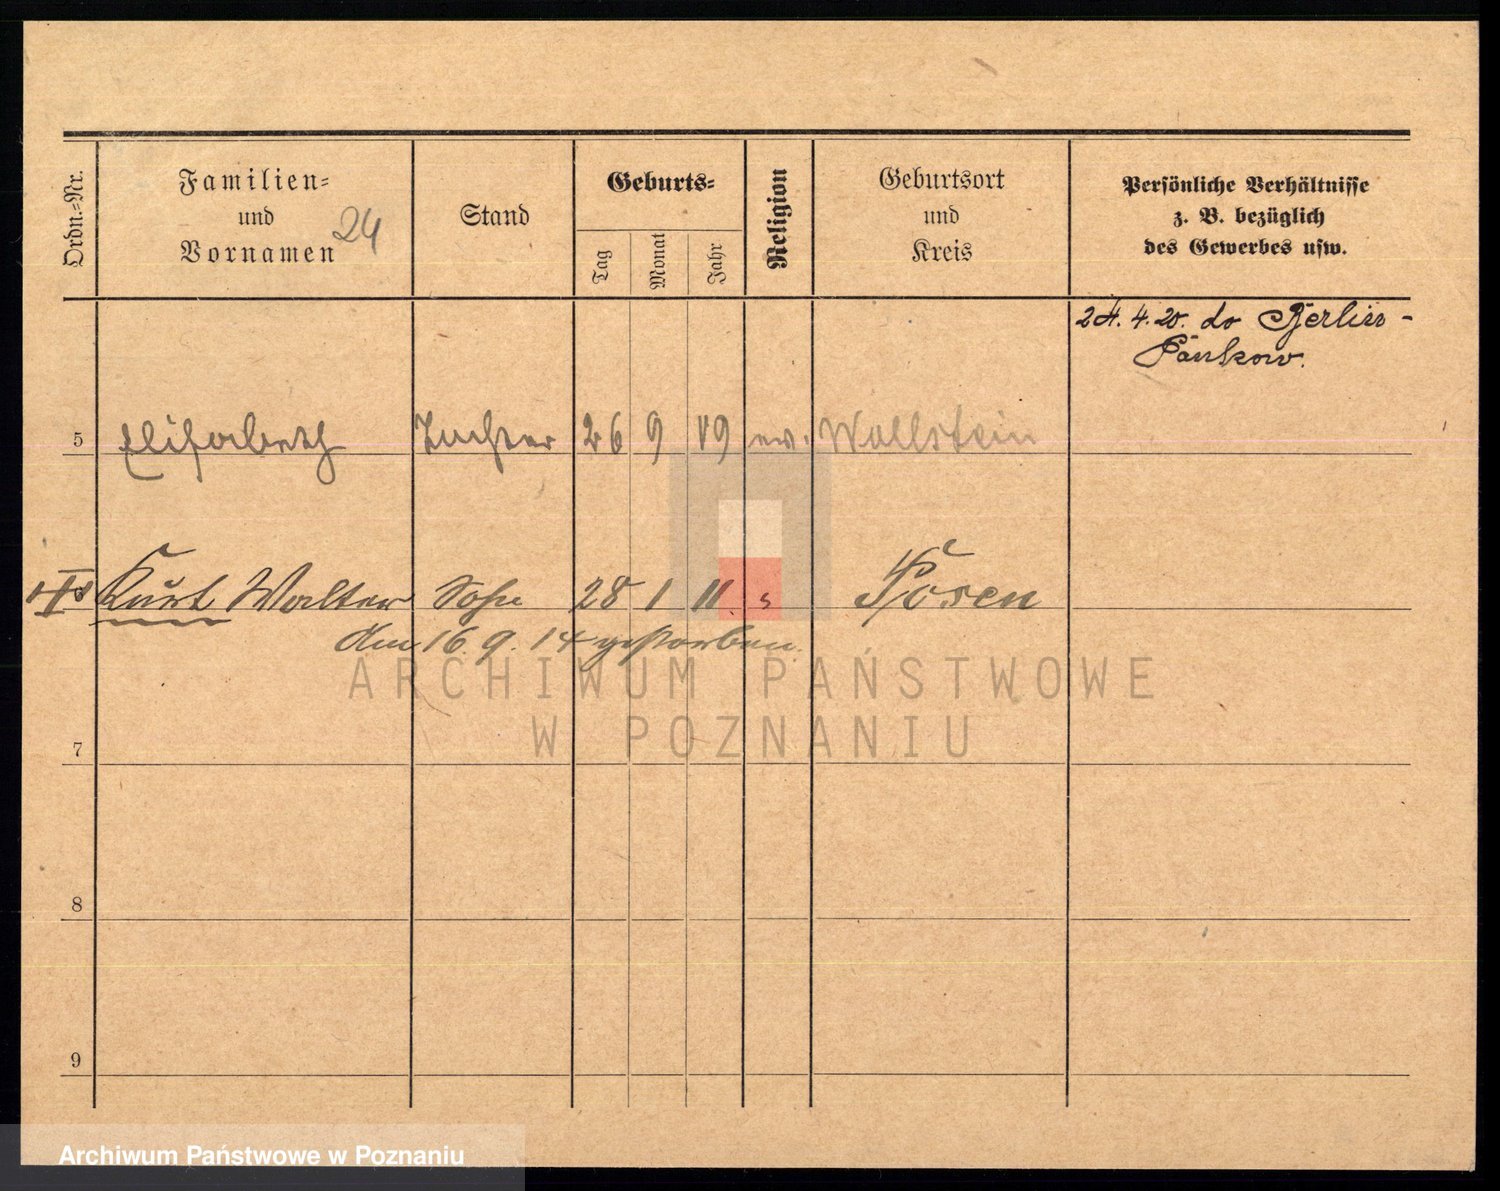 Ordn.-Nr.
Familien-
und
Vornamen
24
Stand
Geburts-
Tag
Monat
Jahr
Religion
Geburtsort
und
Kreis
Persönliche Verhältnisse
z. B. bezüglich
des Gewerbes usw.
24. 4. 20. do Berlin -
Pankow.
5 Elisabeth Tochter 26 9 09 ev. Wollstein
Kurt Walter Sohn 28 1 11. Posen
Am 16. 9. 14 gestorben.
ARCHIWUM PAŃSTWOWE
W POZNANIU
7
8
9
Archiwum Państwowe w Poznaniu